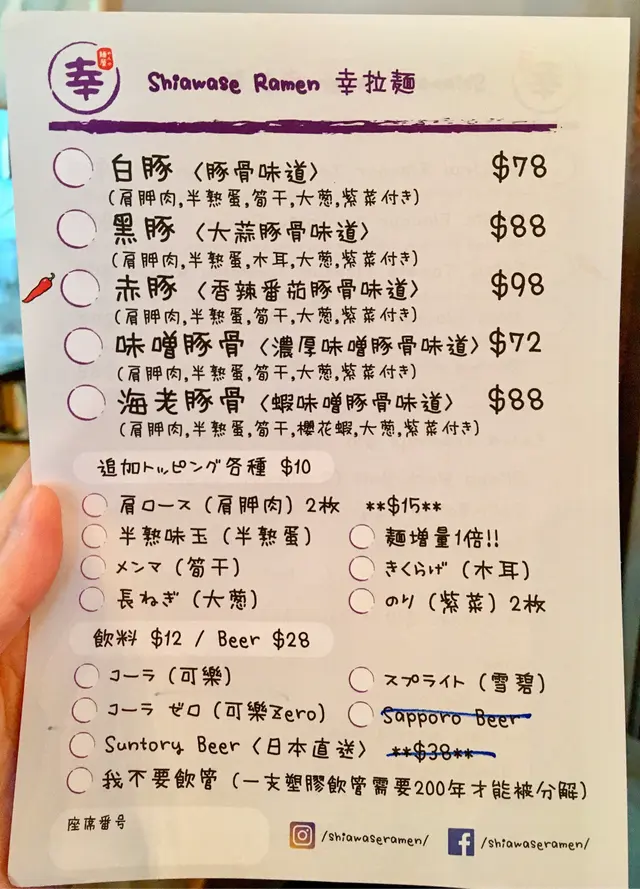 幸
麺屋
Shiawase Ramen 幸拉麵
白豚〈豚骨味道〉 $78
(肩胛肉,半熟蛋,筍干,大葱,紫菜付き)
黑豚〈大蒜豚骨味道〉 $88
(肩胛肉,半熟蛋,木耳,大葱,紫菜付き)
赤豚〈香辣番茄豚骨味道〉 $98
(肩胛肉,半熟蛋,筍干,大葱,紫菜付き)
味噌豚骨〈濃厚味噌豚骨味道〉 $72
(肩胛肉,半熟蛋,筍干,大葱,紫菜付き)
海老豚骨〈蝦味噌豚骨味道〉 $88
(肩胛肉,半熟蛋,筍干,櫻花蝦,大葱,紫菜付き)
追加トッピング各種 $10
肩ロース (肩胛肉) 2枚 **$15**
半熟味玉 (半熟蛋) 麵增量1倍!!
メンマ (筍干) きくらげ (木耳)
長ねぎ (大葱) のり (紫菜) 2枚
飲料 $12 / Beer $28
コーラ (可樂) スプライト (雪碧)
コーラ ゼロ (可樂Zero) Sapporo Beer
Suntory Beer〈日本直送〉 **$38**
我不要飲管 (一支塑膠飲管需要200年才能被分解)
座席番号 /shiawaseramen/ /shiawaseramen/